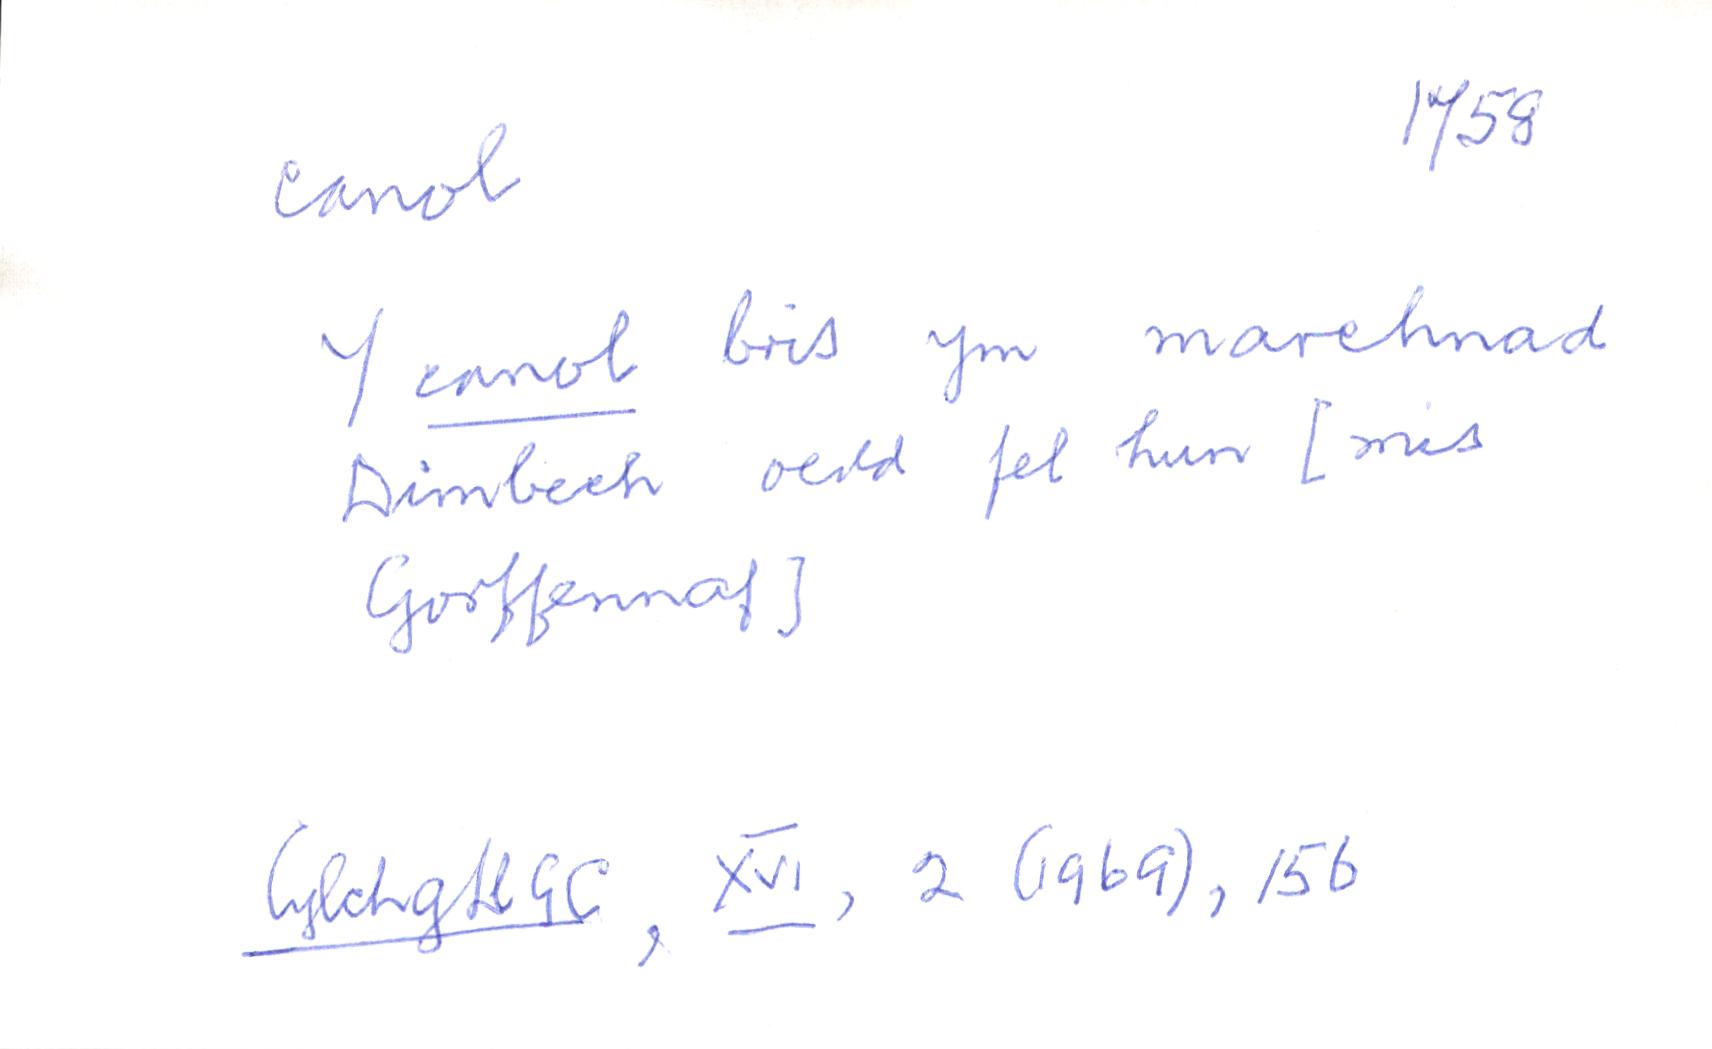 1758
canol
Y canol bris ym marchnad
Dimbech oedd fel hun [mis
Gorffennaf]
CylchgLlGC, XVI, 2 (1969), 156